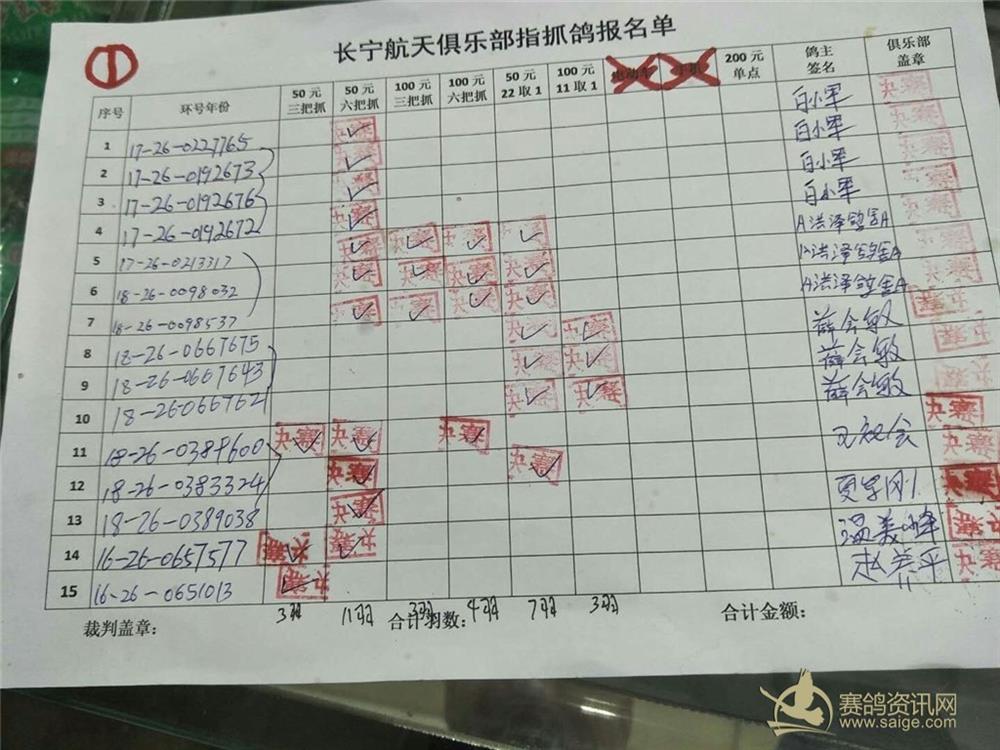 ①
长宁航天俱乐部指抓鸽报名单
序号 环号年份 50元三把抓 50元六把抓 100元三把抓 100元六把抓 50元22取1 100元11取1 200元单点 鸽主签名 俱乐部盖章
1 17-26-0227765 ✓ 白小军
2 17-26-0192673 ✓ 白小军
3 17-26-0192676 ✓ 白小军
4 17-26-0192672 ✓ 白小军
5 17-26-0213317 ✓ ✓ ✓ ✓ A洪泽鸽舍A
6 18-26-0098032 ✓ ✓ ✓ ✓ A洪泽鸽舍A
7 18-26-0098537 ✓ ✓ ✓ ✓ A洪泽鸽舍A
8 18-26-0667675 ✓ ✓ 薛会敏
9 18-26-0667643 ✓ ✓ 薛会敏
10 18-26-0667621 ✓ ✓ 薛会敏
11 18-26-0384600 决赛 ✓ 决赛 ✓ 决赛 ✓
12 18-26-0383324 决赛 ✓ 决赛 ✓
13 18-26-0389038 决赛 ✓
14 16-26-0657577 决赛 ✓ 决赛 ✓ 温美峰
15 16-26-0651013 决赛 ✓ 赵美平
3羽 11羽 3羽 4羽 7羽 3羽
裁判盖章： 合计羽数： 合计金额：
赛鸽资讯网
www.saige.com